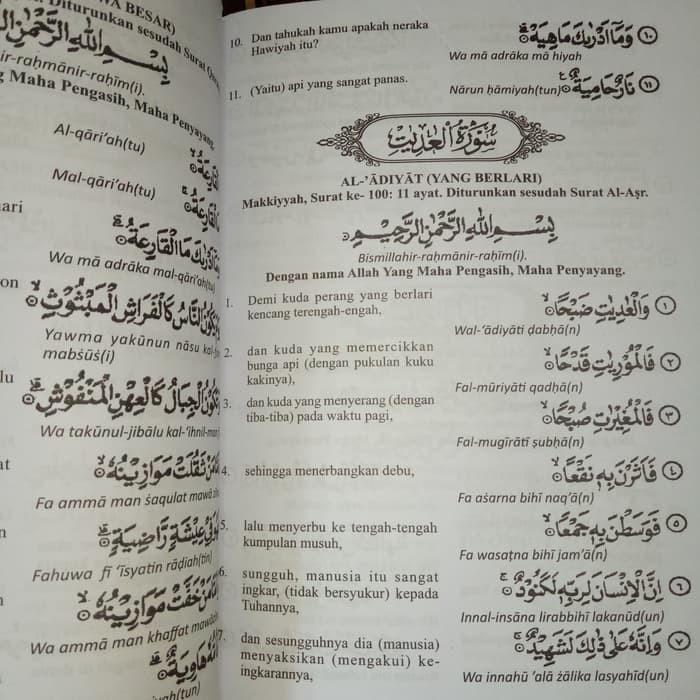 WA BESAR)
Diturunkan sesudah Surat
بِسْمِ اللّٰهِ الرَّحْمٰنِ الرَّحِيْمِ
ir-raḥmānir-raḥīm(i).
Maha Pengasih, Maha Penyayang.
اَلْقَارِعَةُ
Al-qāri‘ah(tu)
مَا الْقَارِعَةُ
Mal-qāri‘ah(tu)
اَدْرٰىكَ مَا الْقَارِعَةُ
Wa mā adrāka mal-qāri‘ah(tu)
يَكُوْنُ النَّاسُ كَالْفَرَاشِ الْمَبْثُوْثِ
Yawma yakūnun nāsu
mabṡūṡ(i)
وَتَكُوْنُ الْجِبَالُ كَالْعِهْنِ الْمَنْفُوْشِ
Wa takūnul-jibālu kal-‘ihnil-
مَنْ ثَقُلَتْ مَوَازِيْنُهٗ
Fa ammā man ṡaqulat
فِيْ عِيْشَةٍ رَّاضِيَةٍ
Fahuwa fī ‘īsyatin rāḍiah(tin)
مَنْ خَفَّتْ مَوَازِيْنُهٗ
Wa ammā man khaffat
هَاوِيَةٌ
hāwiyah(tun)
10. Dan tahukah kamu apakah neraka
Hawiyah itu?
وَمَآ اَدْرٰىكَ مَا هِيَهْ ۝١٠
Wa mā adrāka mā hiyah
11. (Yaitu) api yang sangat panas.
نَارٌ حَامِيَةٌ ۝١١
Nārun ḥāmiyah(tun)
سُوْرَةُ الْعٰدِيٰتِ
AL-’ĀDIYĀT (YANG BERLARI)
Makkiyyah, Surat ke- 100: 11 ayat. Diturunkan sesudah Surat Al-Aṣr.
بِسْمِ اللّٰهِ الرَّحْمٰنِ الرَّحِيْمِ
Bismillahir-raḥmānir-raḥīm(i).
Dengan nama Allah Yang Maha Pengasih, Maha Penyayang.
1. Demi kuda perang yang berlari
kencang terengah-engah,
وَالْعٰدِيٰتِ ضَبْحًا ۝١
Wal-‘ādiyāti ḍabḥā(n)
2. dan kuda yang memercikkan
bunga api (dengan pukulan kuku
kakinya),
فَالْمُوْرِيٰتِ قَدْحًا ۝٢
Fal-mūriyāti qadḥā(n)
3. dan kuda yang menyerang (dengan
tiba-tiba) pada waktu pagi,
فَالْمُغِيْرٰتِ صُبْحًا ۝٣
Fal-mugīrāti ṣubḥā(n)
4. sehingga menerbangkan debu,
فَاَثَرْنَ بِهٖ نَقْعًا ۝٤
Fa aṡarna bihī naq‘ā(n)
5. lalu menyerbu ke tengah-tengah
kumpulan musuh,
فَوَسَطْنَ بِهٖ جَمْعًا ۝٥
Fa wasaṭna bihī jam‘ā(n)
6. sungguh, manusia itu sangat
ingkar, (tidak bersyukur) kepada
Tuhannya,
اِنَّ الْاِنْسَانَ لِرَبِّهٖ لَكَنُوْدٌ ۝٦
Innal-insāna lirabbihī lakanūd(un)
7. dan sesungguhnya dia (manusia)
menyaksikan (mengakui) ke-
ingkarannya,
وَاِنَّهٗ عَلٰى ذٰلِكَ لَشَهِيْدٌ ۝٧
Wa innahū ‘alā żālika lasyahīd(un)